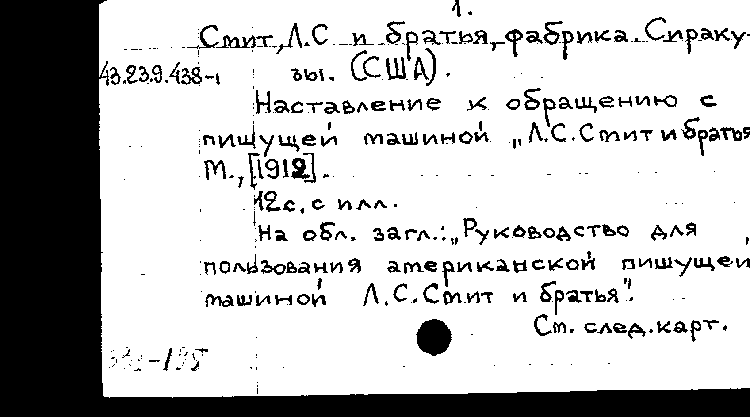 1.
Смит, Л.С и братья, фабрика. Сираку-
43.23.9.438-1 зы. (США).
Наставление к обращению с
пишущей машиной „Л.С. Смит и братья
М., [1912].
12с. с илл.
На обл. загл.: „Руководство для
пользования американской пишущей
машиной Л.С. Смит и братья".
См. след. карт.